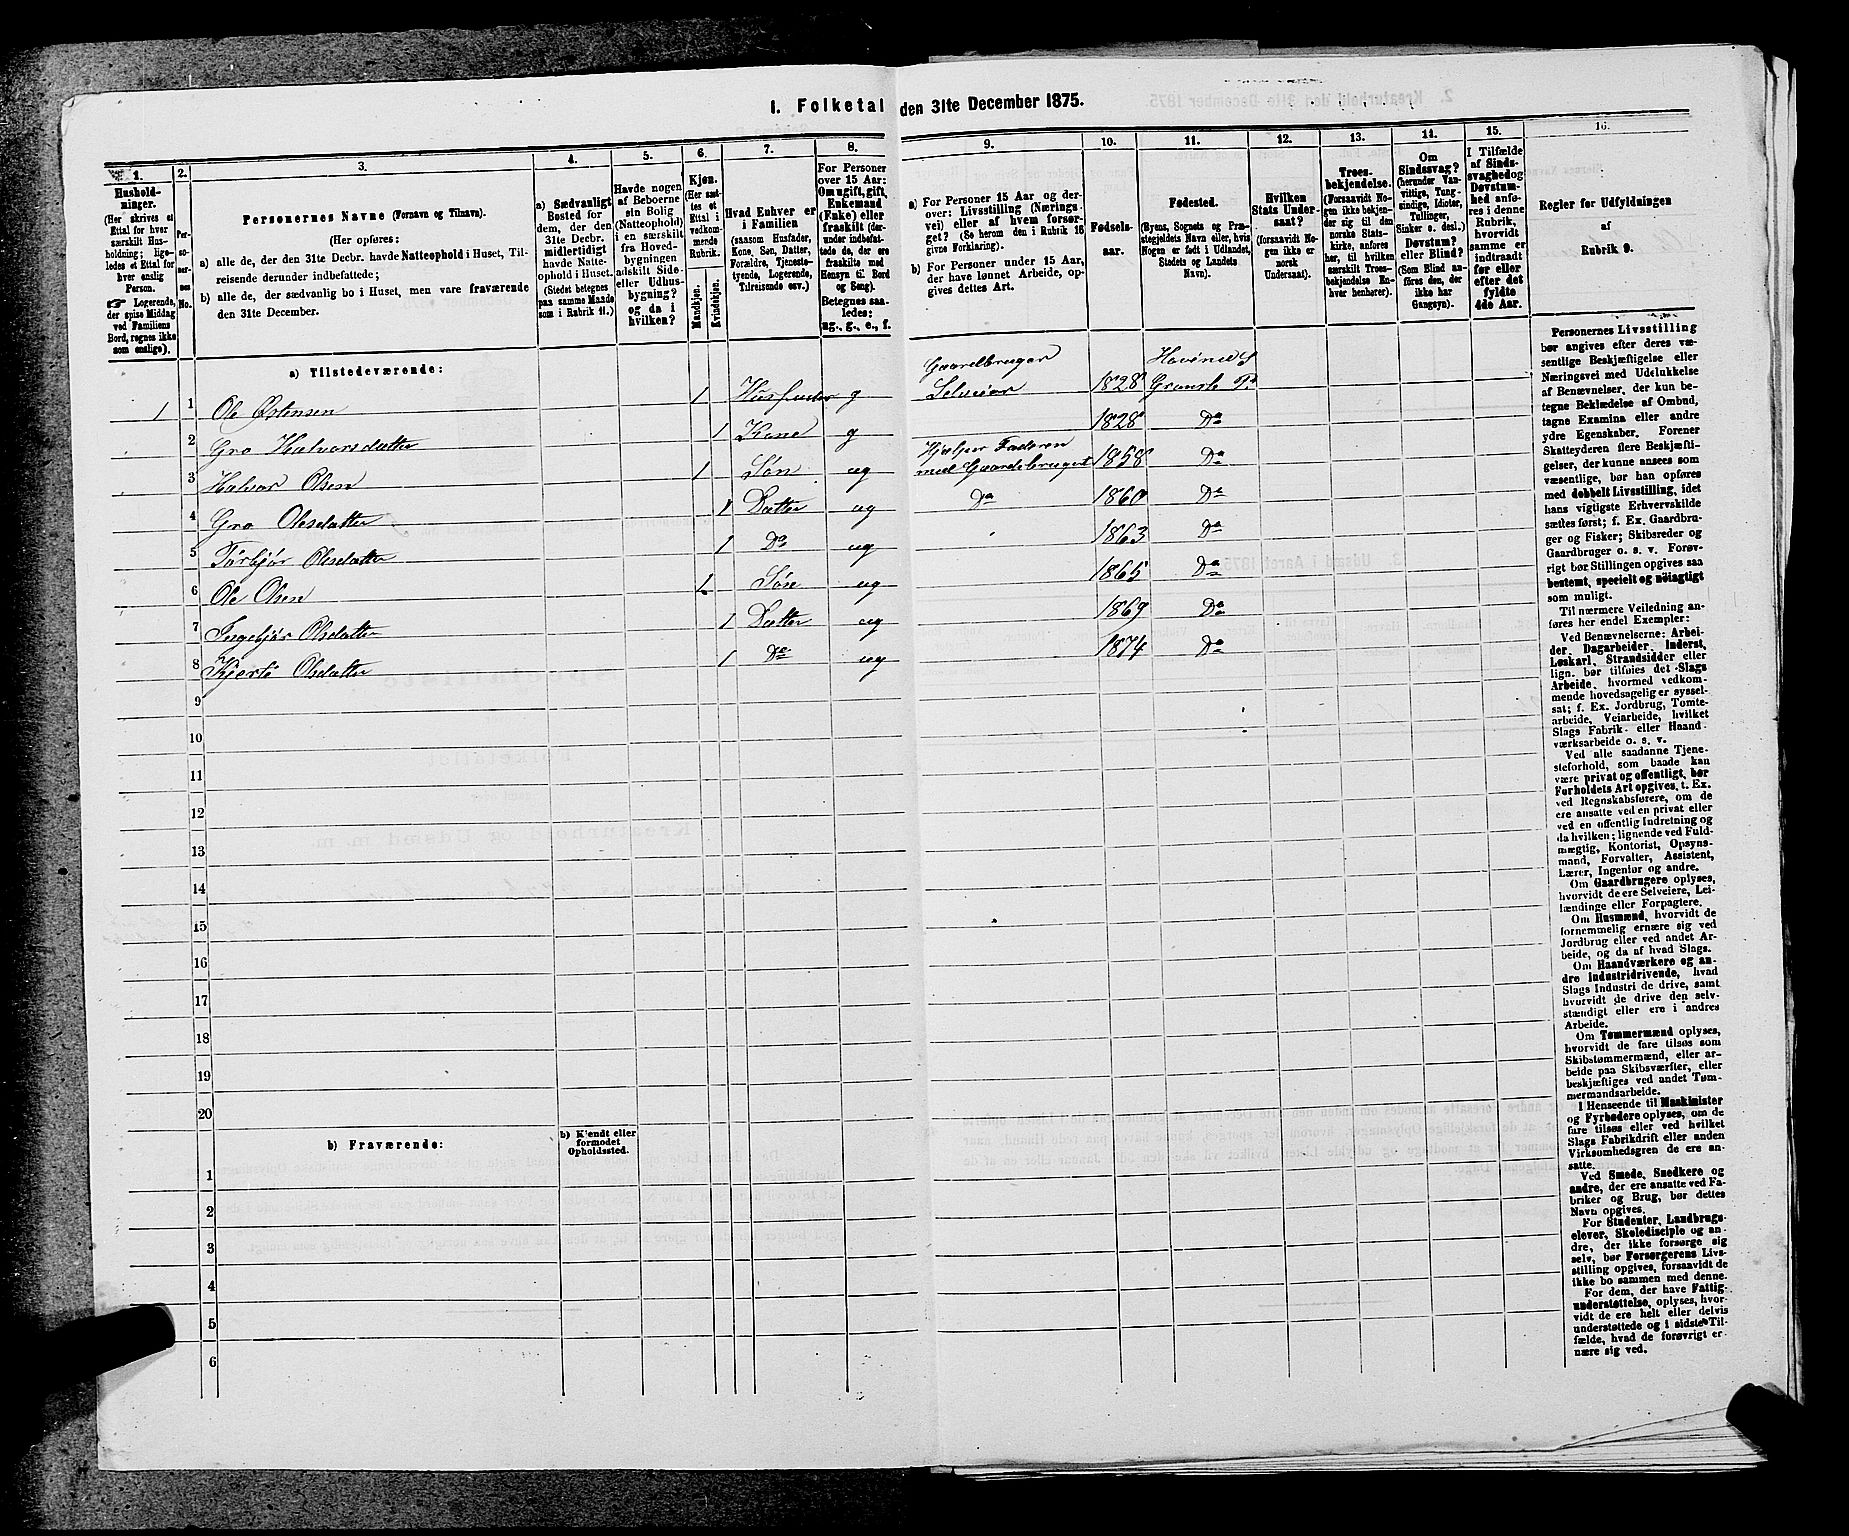 1. Folketal den 31te December 1875.
1. 2. 3. 4. 5. 6. 7. 8. 9. 10. 11. 12. 13. 14. 15. 16.
Hushold-
ninger.
(Her skrives et
Ettal for hver
særskilt Hus-
holdning; lige-
ledes et Ettal for
hver enslig
Person.
☞ Logerende,
der spise Middag
ved Familiens
Bord, regnes ikke
som enslige).
Per-
soner-
nes
No.
Personernes Navne (Fornavn og Tilnavn).
(Her opføres:
a) alle de, der den 31te Decbr. havde Natteophold i Huset, Til-
reisende derunder indbefattede;
b) alle de, der sædvanlig bo i Huset, men vare fraværende
den 31te December.
a) Sædvanligt
Bosted for
dem, der den
31te Decbr.
midlertidigt
havde Natte-
ophold i Huset.
(Stedet betegnes
paa samme Maade
som i Rubrik 11.)
Havde nogen
af Beboerne
sin Bolig
(Natteophold)
i en særskilt
fra Hoved-
bygningen
adskilt Side-
eller Udhus-
bygning?
og da i
hvilken?
Kjøn.
(Her sæt-
tes et
Ettal i
vedkom-
mende
Rubrik.
Mandkjøn.
Kvindekjøn.
Hvad Enhver er
i Familien
(saasom Husfader,
Kone, Søn, Datter,
Forældre, Tjeneste-
tyende, Logerende,
Tilreisende osv.)
For Personer
over 15 Aar:
Om ugift, gift,
Enkemand
(Enke) eller
fraskilt (her-
under indbefat-
tede de, der ere
fraskilte med
Hensyn til Bord
og Seng).
Betegnes saa-
ledes:
ug., g., e., f.
a) For Personer 15 Aar og der-
over: Livsstilling (Nærings-
vei) eller af hvem forsør-
get? (Se herom den i Rubrik 16
givne Forklaring).
b) For Personer under 15 Aar,
der have lønnet Arbeide, op-
gives dettes Art.
Fødsels-
aar.
Fødested.
(Byens, Sognets og Præ-
stegjeldets Navn eller, hvis
Nogen er født i Udlandet,
Stedets og Landets
Navn).
Hvilken
Stats Under-
saat?
(forsaavidt No-
gen ikke er
norsk
Undersaat).
Troes-
bekjendelse.
(Forsaavidt No-
gen ikke bekjen-
der sig til den
norske Stats-
kirke, anføres
her, til hvilken
særskilt Troes-
bekjendelse En-
hver henhører).
Om
Sindssvag?
(herunder Van-
vittige, Tung-
sindige, Idioter,
Tullinger,
Sinker o. desl.)
Døvstum?
eller Blind?
(Som Blind an-
føres den, der
ikke har
Gangsyn).
I Tilfælde
af Sinds-
svaghed og
Døvstum-
hed anfø-
res i denne
Rubrik,
hvorvidt
samme er
indtraadt
før eller
efter det
fyldte
4de Aar.
Regler for Udfyldningen
af
Rubrik 9.
a) Tilstedeværende:
1 1 Ole Østensen 1 Husfader g Gaardbruger Selveier 1828 Hovind S Gransh. P.
2 Gro Halvorsdatter 1 Kone g 1828 Do
3 Halvor Olsen 1 Søn ug Hjælper Faderen med Gaardsbruget 1858 Do
4 Gro Olesdatter 1 Datter ug Do 1860 Do
5 Torbjør Olesdatter 1 Do ug 1863 Do
6 Ole Olsen 1 Søn ug 1865 Do
7 Ingebjør Olsdatter 1 Datter ug 1869 Do
8 Kjersti Olsdatter 1 Do ug 1874 Do
9
10
11
12
13
14
15
16
17
18
19
20
b) Fraværende:
b) Kjendt eller
formodet
Opholdssted.
1
2
3
4
5
6
Personernes Livsstilling
bør angives efter deres væ-
sentlige Beskjæftigelse eller
Næringsvei med Udelukkelse
af Benævnelser, der kun be-
tegne Beklædelse af Ombud,
tagne Examina eller andre
ydre Egenskaber. Forener
Skatteyderen flere Beskjæfti-
gelser, der kunne ansees som
væsentlige, bør han opføres
med dobbelt Livsstilling, idet
hans vigtigste Erhvervskilde
sættes først; f. Ex. Gaardbru-
ger og Fisker; Skibsreder og
Gaardbruger o. s. v. Forøv-
rigt bør Stillingen opgives saa
bestemt, specielt og nøiagtigt
som muligt.
Til nærmere Veiledning an-
føres her endel Exempler:
Ved Benævnelserne: Arbei-
der, Dagarbeider, Inderst,
Løskarl, Strandsidder eller
lign. bør tilføies det Slags
Arbeide, hvormed vedkom-
mende hovedsagelig er syssel-
sat; f. Ex. Jordbrug, Tomte-
arbeide, Veiarbeide, hvilket
Slags Fabrik- eller Haand-
værksarbeide o. s. v.
Ved alle saadanne Tjene-
steforhold, som baade kan
være privat og offentligt, bør
Forholdets Art opgives, t. Ex.
ved Regnskabsførere, om de
ere ansatte ved en privat eller
ved en offentlig Indretning og
da hvilken; lignende ved Fuld-
mægtig, Kontorist, Opsyns-
mand, Forvalter, Assistent,
Lærer, Ingeniør og andre.
Om Gaardbrugere oplyses,
hvorvidt de ere Selveiere, Lei-
lændinge eller Forpagtere.
Om Husmænd, hvorvidt de
fornemmelig ernære sig ved
Jordbrug eller ved andet Ar-
beide, og da af hvad Slags.
Om Haandværkere og an-
dre Industridrivende, hvad
Slags Industri de drive, samt
hvorvidt de drive den selv-
stændigt eller ere i andres
Arbeide.
Om Tømmermænd oplyses,
hvorvidt de fare tilsøs som
Skibstømmermænd, eller ar-
beide paa Skibsværfter, eller
beskjæftiges ved andet Tøm-
mermandsarbeide.
I Henseende til Maskinister
og Fyrbødere oplyses, om de
fare tilsøs eller ved hvilket
Slags Fabrikdrift eller anden
Virksomhedsgren de ere an-
satte.
Ved Smede, Snedkere og
andre, der ere ansatte ved Fa-
briker og Brug, bør dettes
Navn opgives.
For Studenter, Landbrugs-
elever, Skoledisciple og an-
dre, der ikke forsørge sig
selv, bør Forsørgerens Livs-
stilling opgives, forsaavidt de
ikke bo sammen med denne.
For dem, der have Fattig-
understøttelse, oplyses, hvor-
vidt de ere helt eller delvis
understøttede og i sidste Til-
fælde, hvad de forøvrigt er-
nære sig ved.